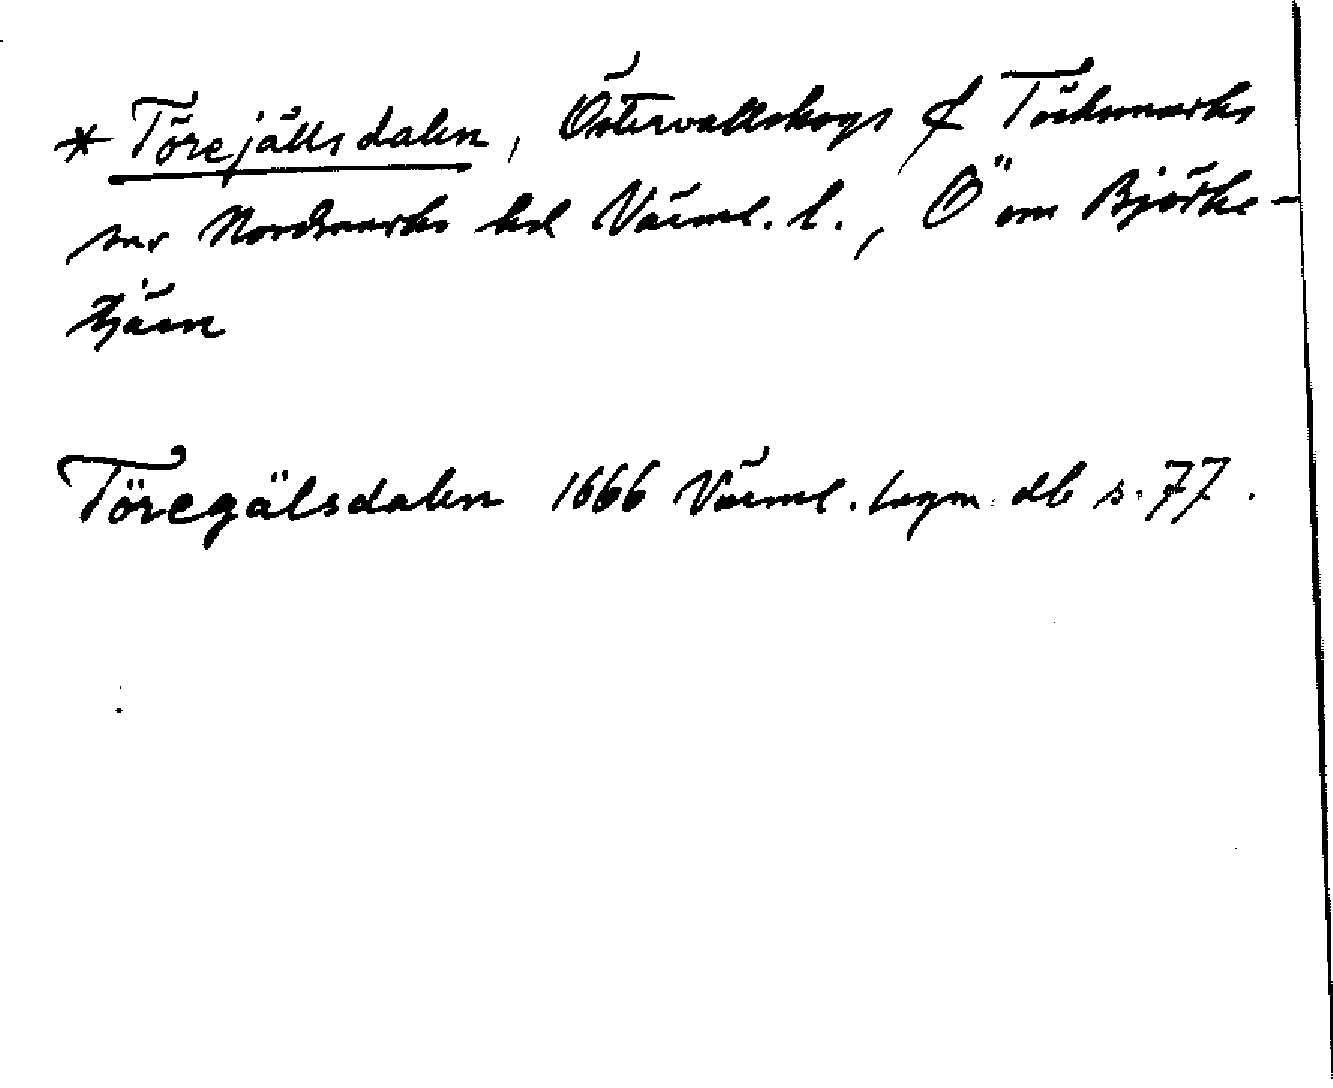 * Törejälls dalen, Östervallskogs & Töcksmarks
snr Nordmarks hd Värml. l., Ö om Björke-
tjärn
Töregälsdalen 1666 Värml. lagm. db s. 77.